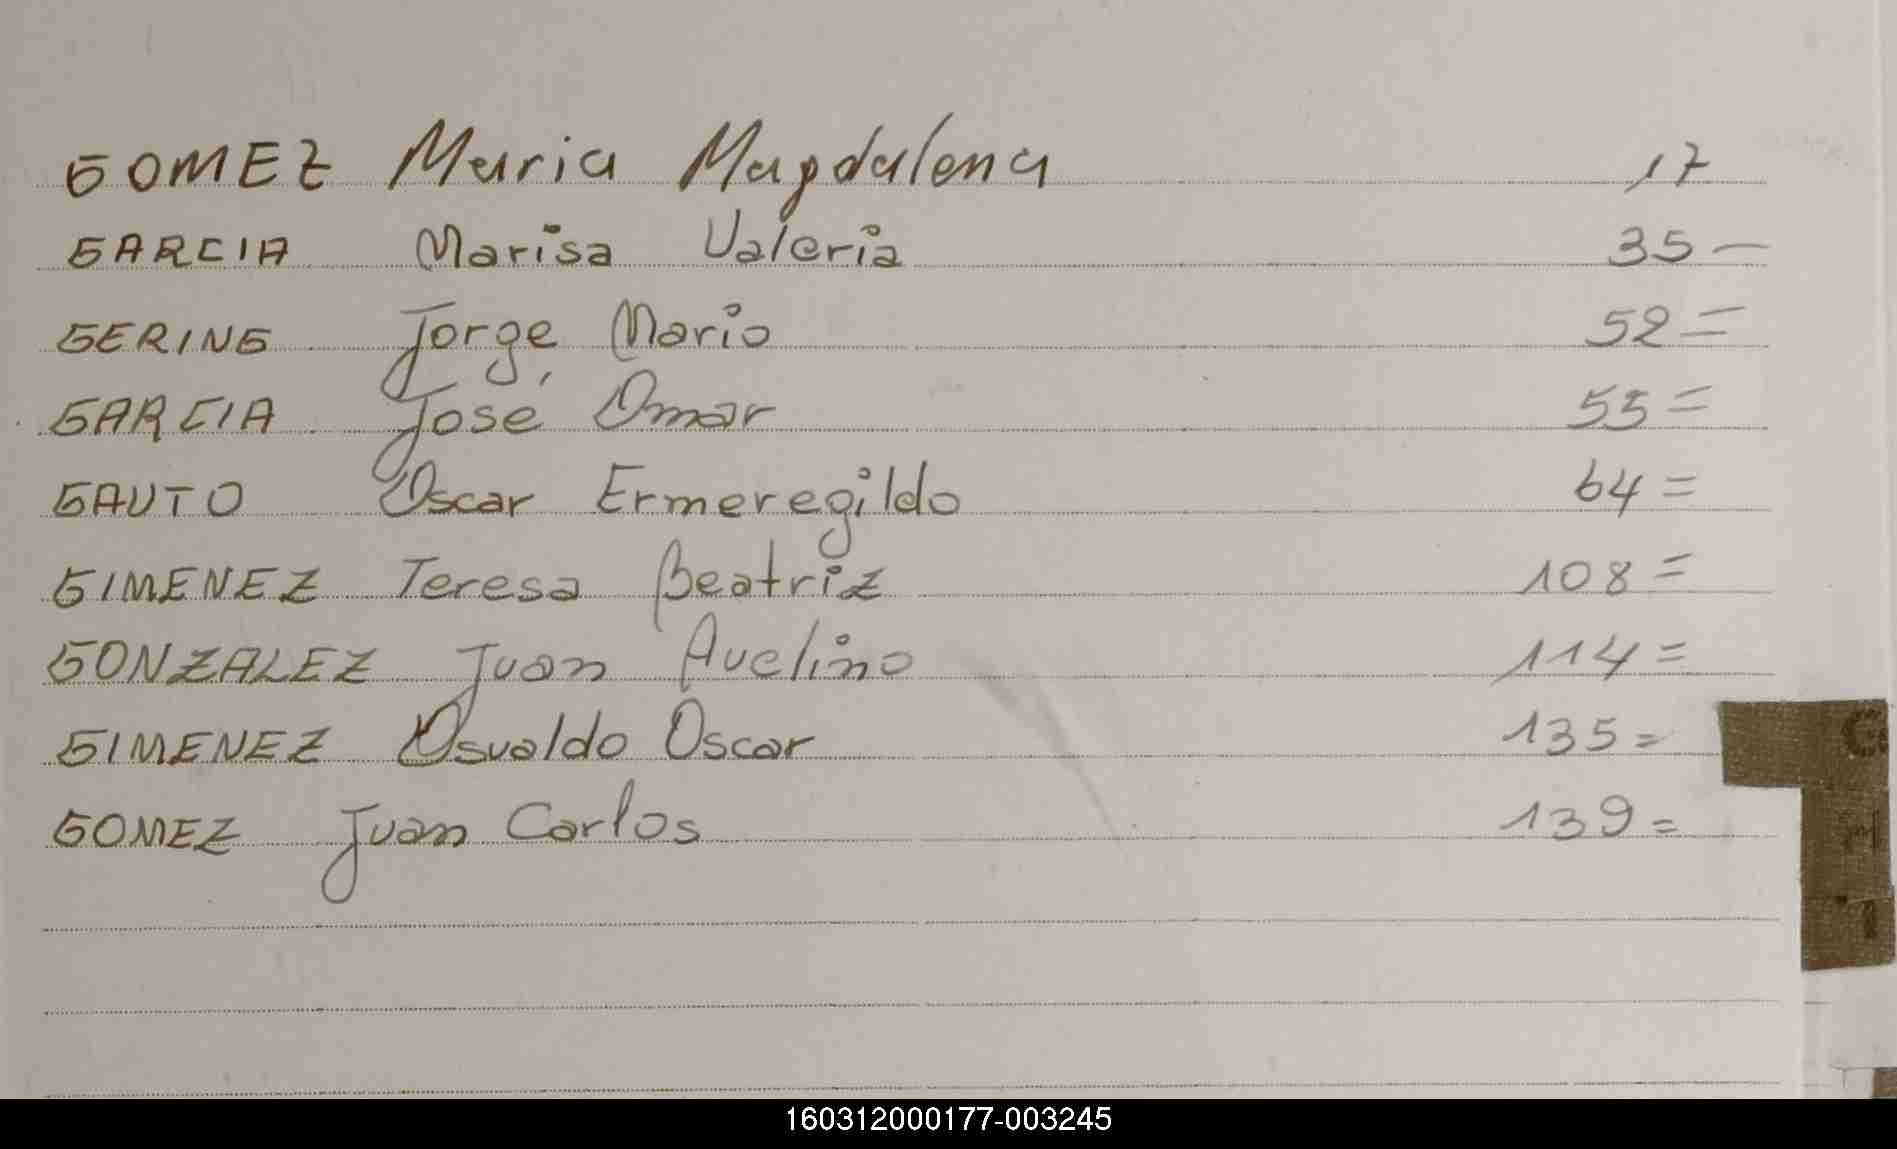 GOMEZ Maria Magdalena 17
GARCIA Marisa Valeria 35 —
GERING Jorge Mario 52 =
GARCIA José Omar 55 =
GAUTO Oscar Ermeregildo 64 =
GIMENEZ Teresa Beatriz 108 =
GONZALEZ Juan Avelino 114 =
GIMENEZ Osvaldo Oscar 135 =
GOMEZ Juan Carlos 139 =
G
H
160312000177-003245